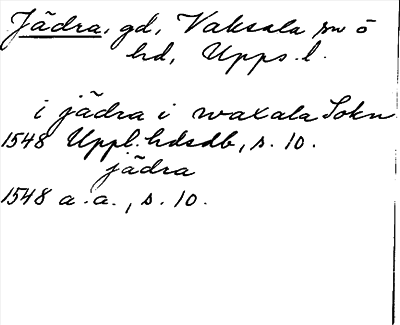 Jädra, gd, Vaksala sn ö
hd, Upps. l.
i jädra i waxala Sokn
1548 Uppl. hdsdb, s. 10.
jädra
1548 a. a., s. 10.